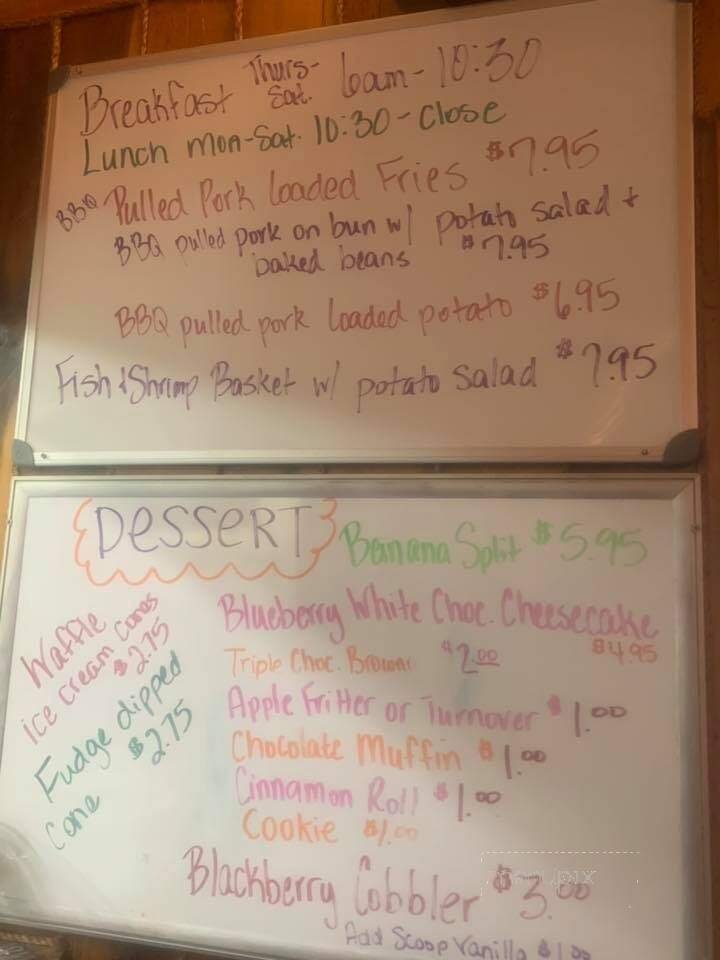 Breakfast Thurs-Sat. 6am-10:30
Lunch Mon-Sat. 10:30-Close
BBQ Pulled Pork Loaded Fries $7.95
BBQ pulled pork on bun w/ potato salad +
baked beans $7.95
BBQ pulled pork loaded potato $6.95
Fish & Shrimp Basket w/ potato salad $7.95
Dessert
Banana Split $5.95
Waffle
ice cream cones
$2.75
Fudge dipped
cone $2.75
Blueberry White Choc. Cheesecake
$4.95
Triple Choc. Brownie $2.00
Apple Fritter or Turnover $1.00
Chocolate Muffin $1.00
Cinnamon Roll $1.00
Cookie $1.00
Blackberry Cobbler $3.00
Add Scoop Vanilla $1.00